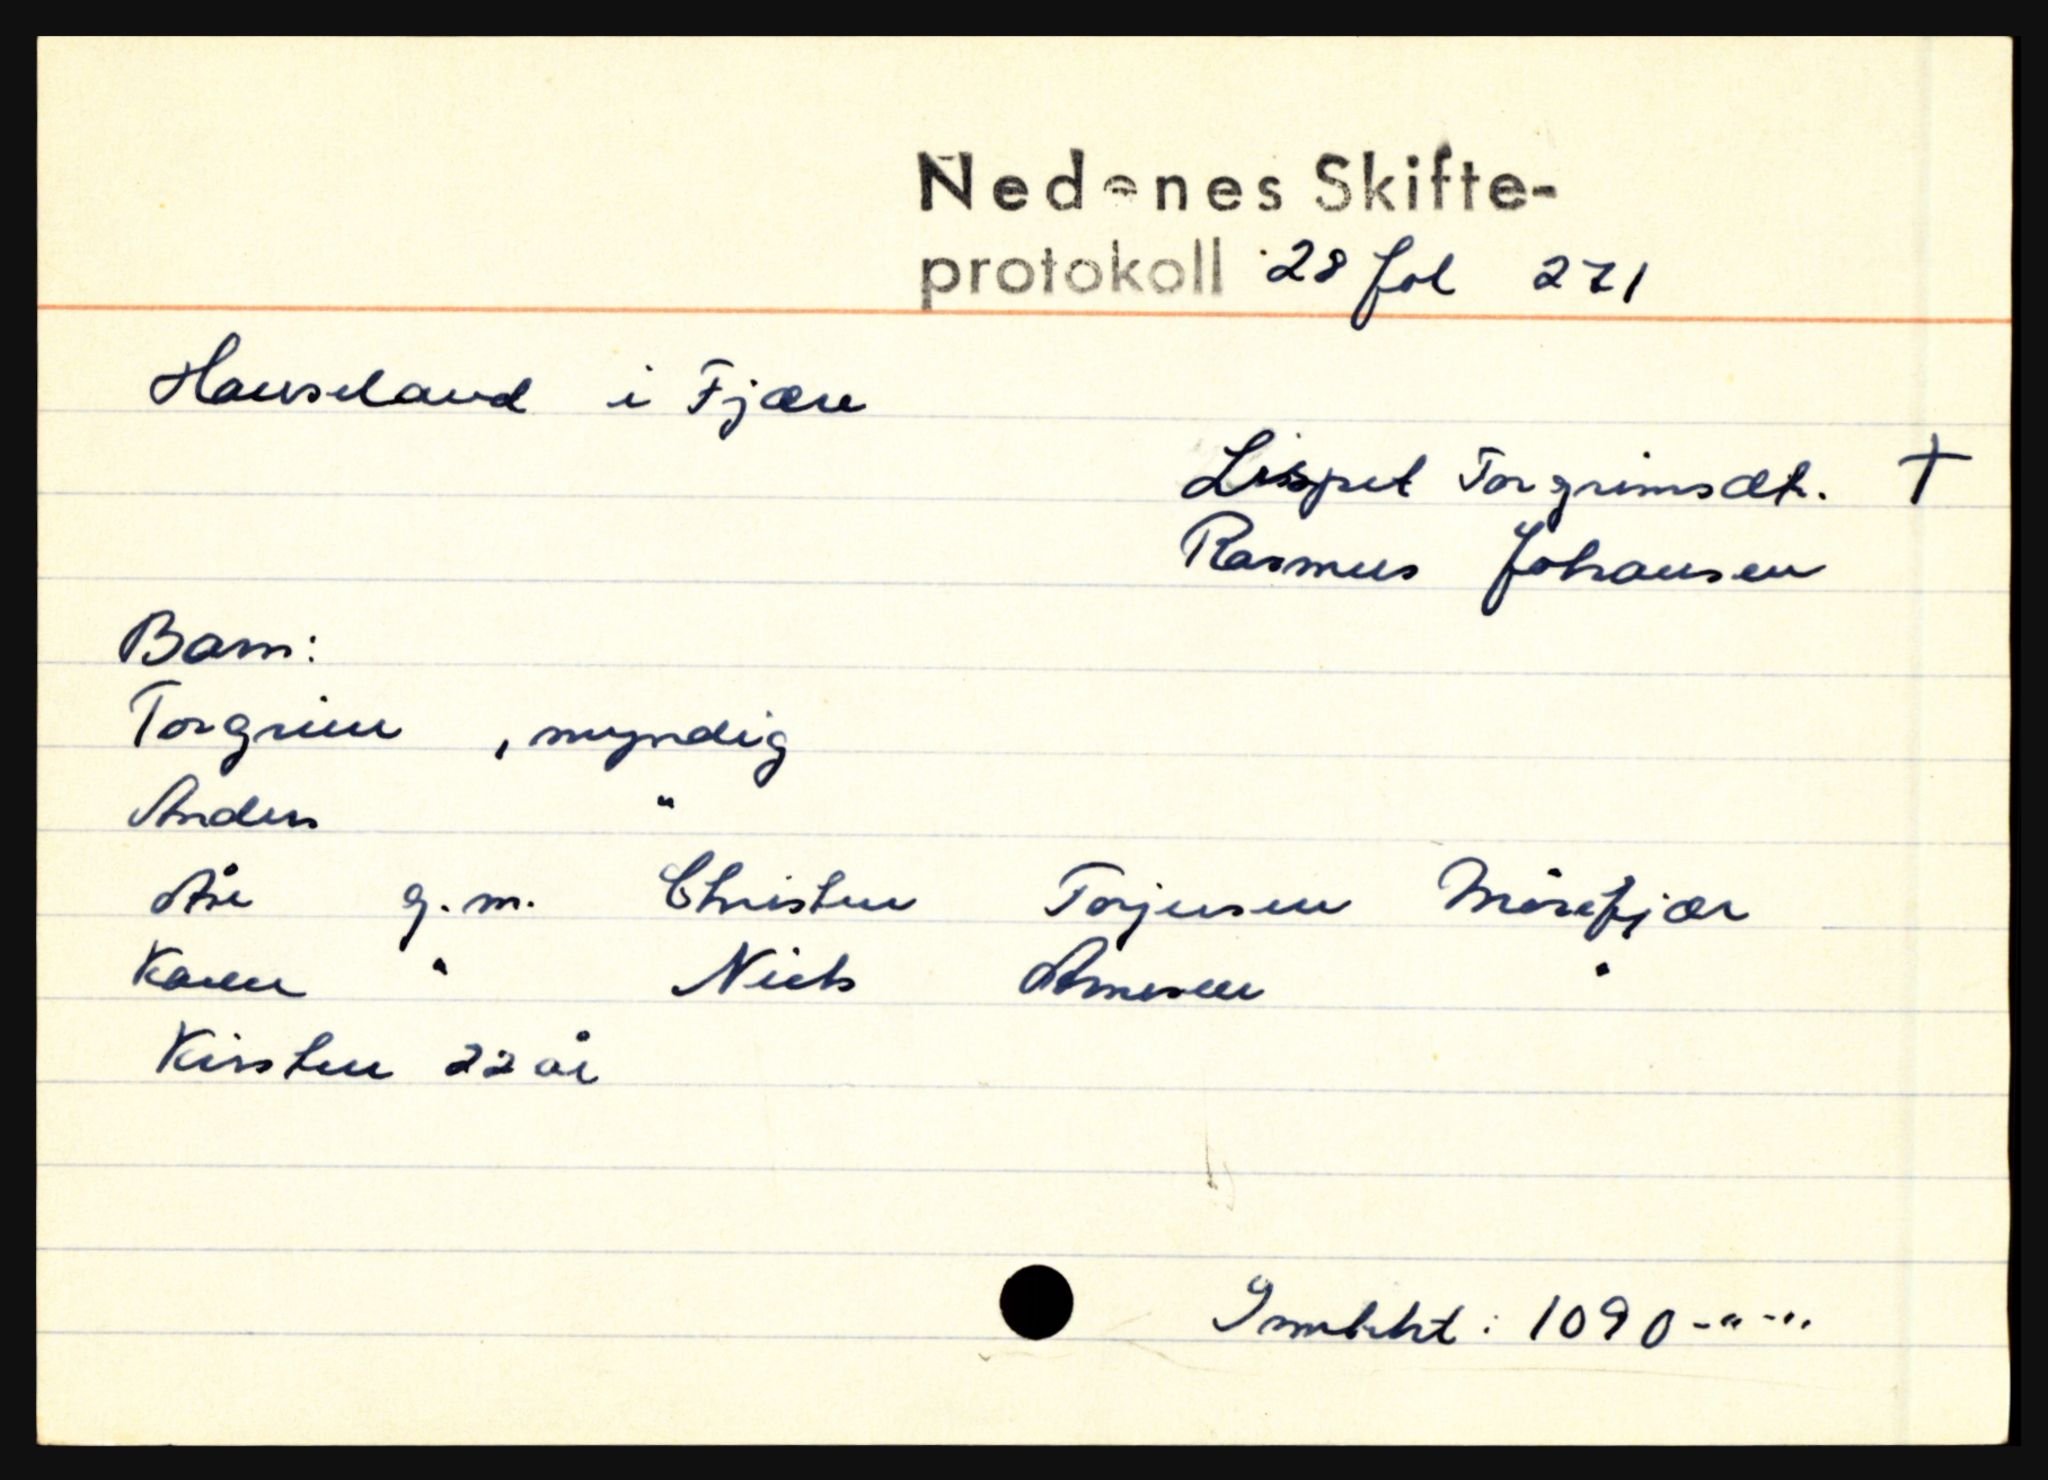 Nedenes Skifte-
protokoll 28 fol 271
Hauseland i Fjære
Lispet Torgrimsdt. †
Rasmus Johansen
Barn:
Torgrim , myndig
Anders "
Åse g.m. Christen Torjusen Mørefjær
Karen " Niels Arnesen "
Kirsten 22 år
1090-"-".